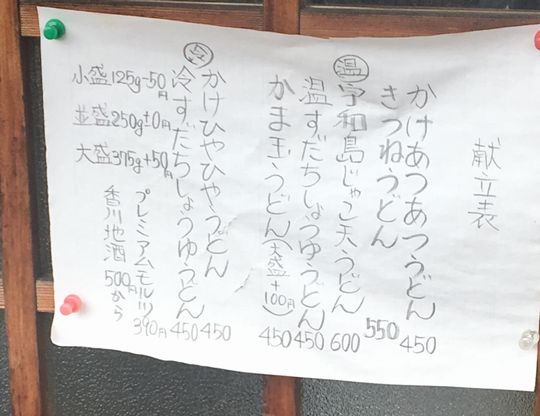 献立表
かけあつあつうどん 450
きつねうどん 550
温 宇和島じゃこ天うどん 600
温すだちしょうゆうどん 450
かま玉うどん(大盛+100円) 450
かけひやひやうどん 450
冷すだちしょうゆうどん 450
小盛125g-50円
並盛250g±0円
大盛375g+50円
プレミアムモルツ 390円
香川地酒 500円から